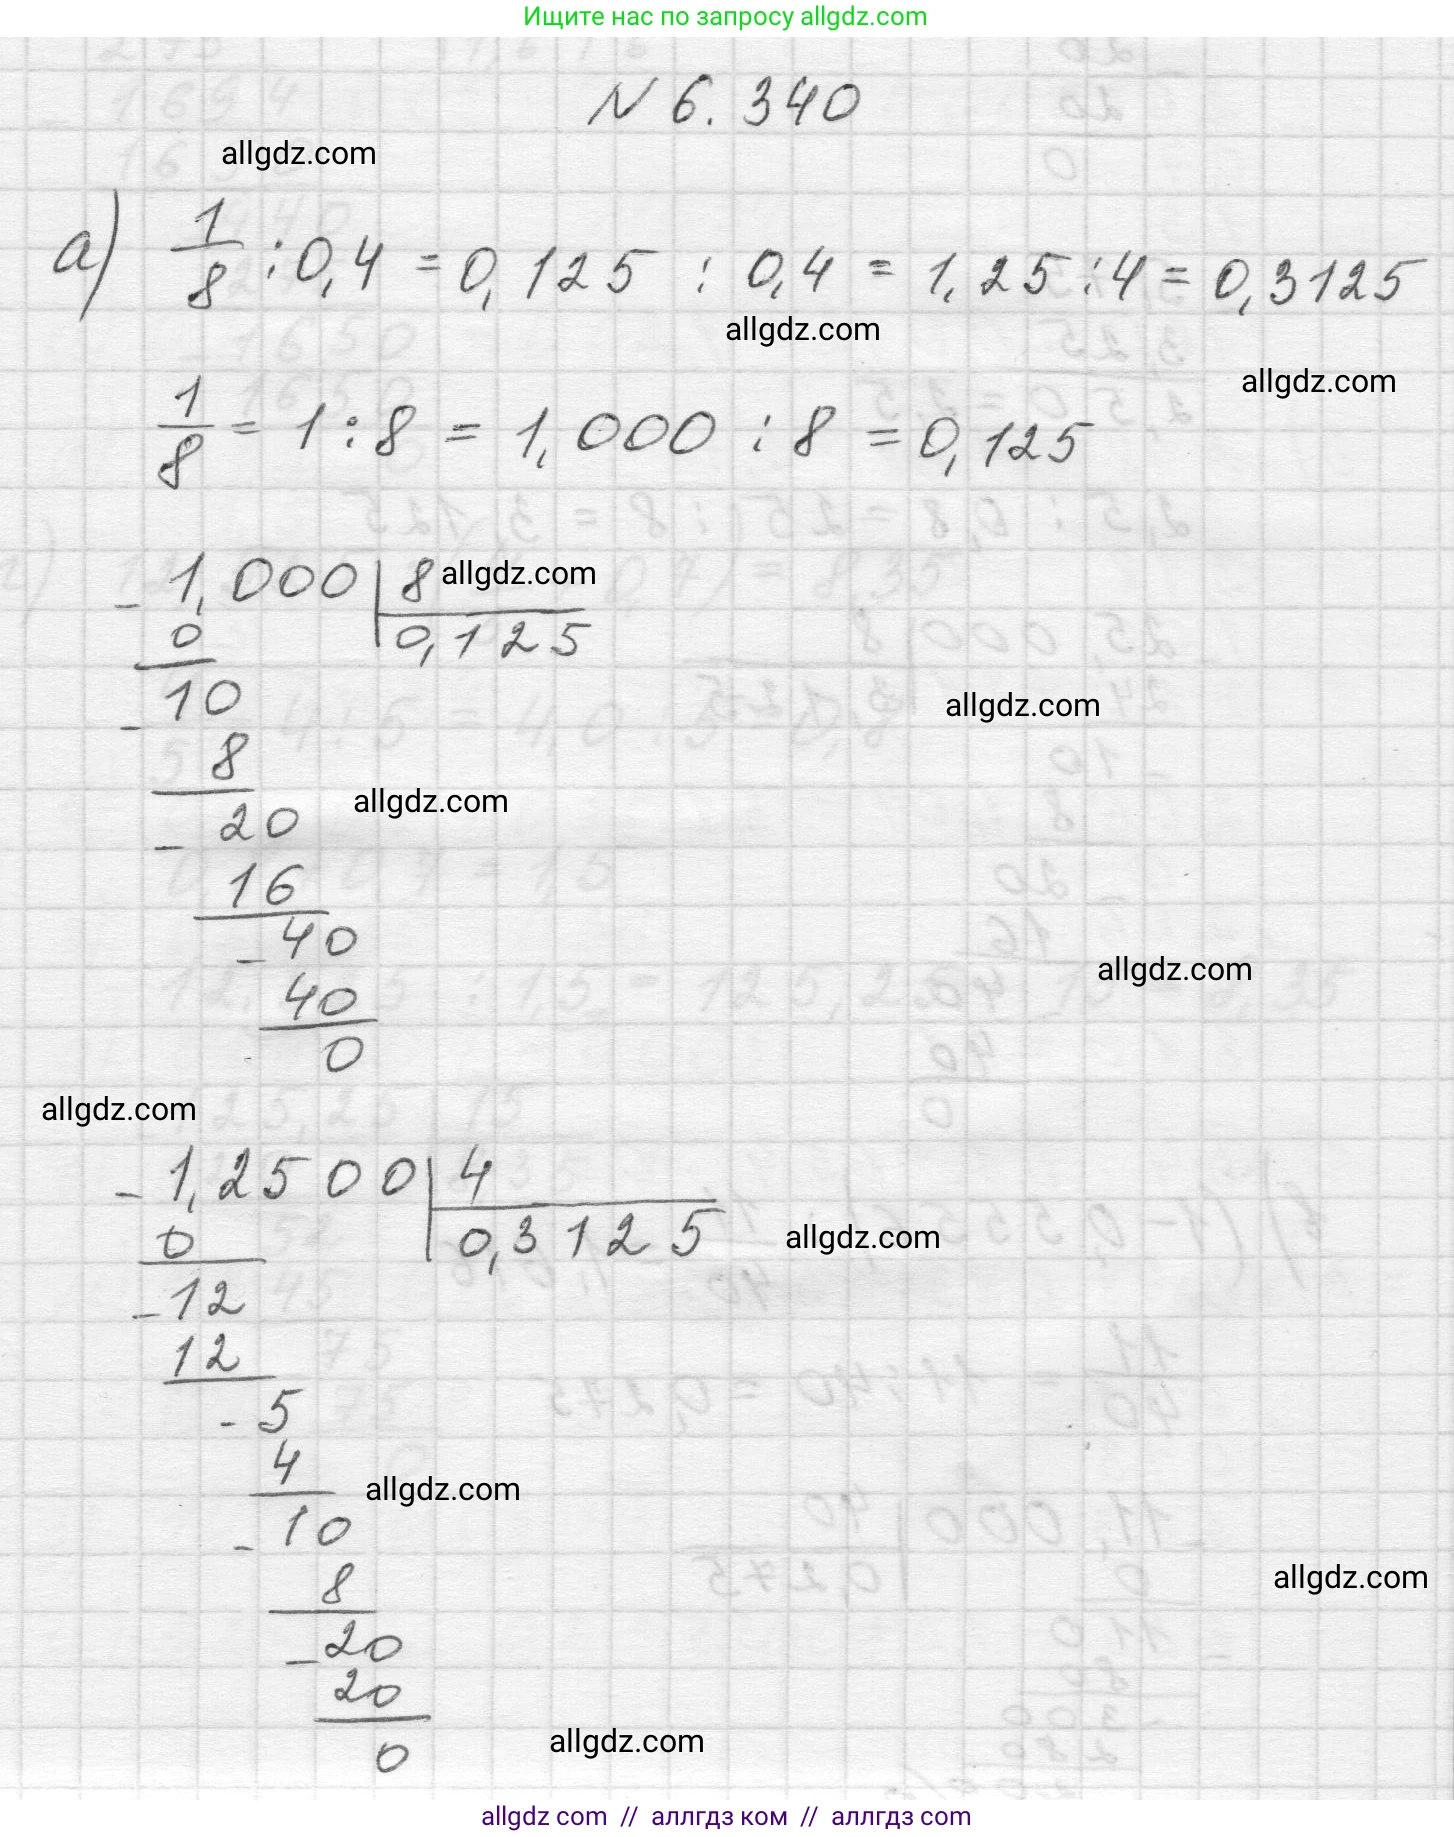 Ищите нас по запросу allgdz.com
N 6.340
allgdz.com
а) 1/8 : 0,4 = 0,125 : 0,4 = 1,25 : 4 = 0,3125
allgdz.com
allgdz.com
1/8 = 1 : 8 = 1,000 : 8 = 0,125
- 1,000 | 8
allgdz.com
0
0,125
- 10
allgdz.com
8
allgdz.com
- 20
16
- 40
allgdz.com
40
0
allgdz.com
- 1,2500 | 4
0
0,3125
allgdz.com
- 12
12
- 5
4
allgdz.com
- 10
8
allgdz.com
- 20
20
allgdz.com
0
allgdz com // аллгдз ком // аллгдз com